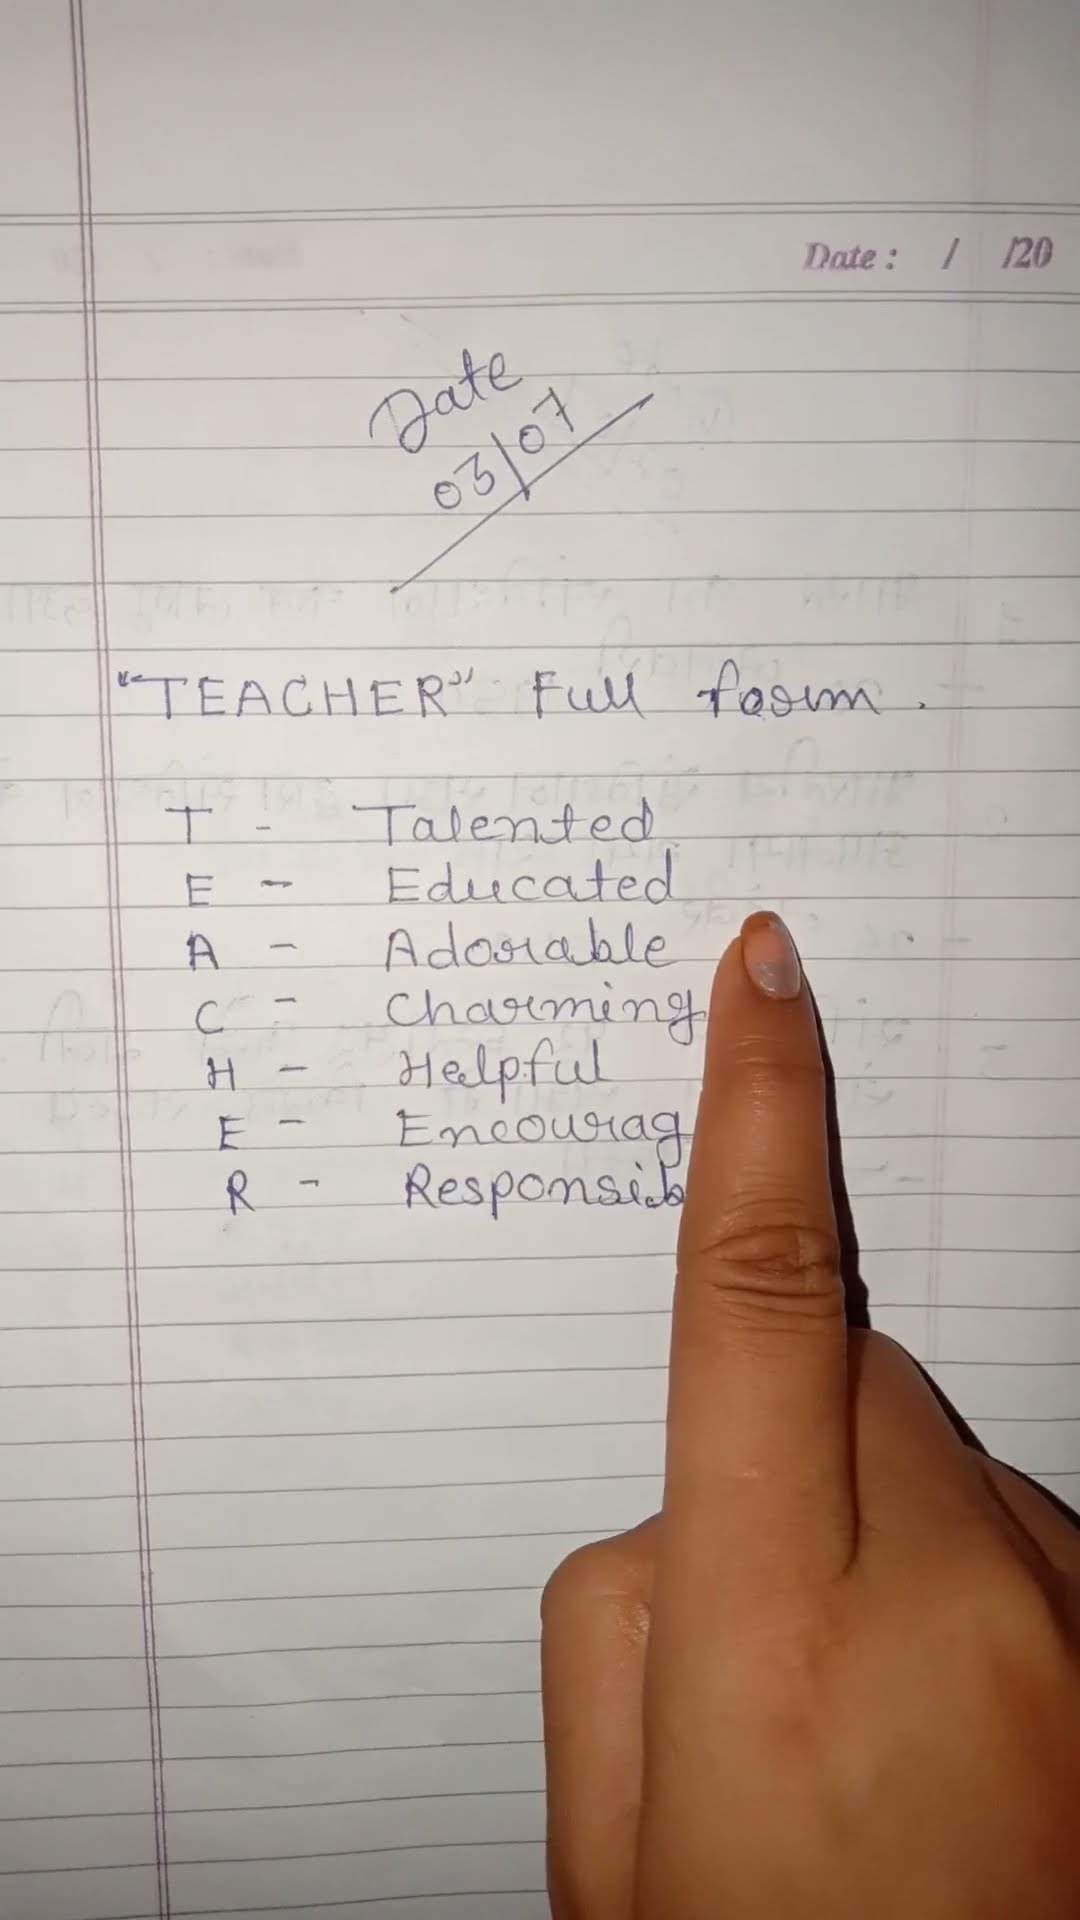 Date : / /20
Date
03/07
"TEACHER" Full form.
T - Talented
E - Educated
A - Adorable
C - Charming
H - Helpful
E - Encourag
R - Responsib